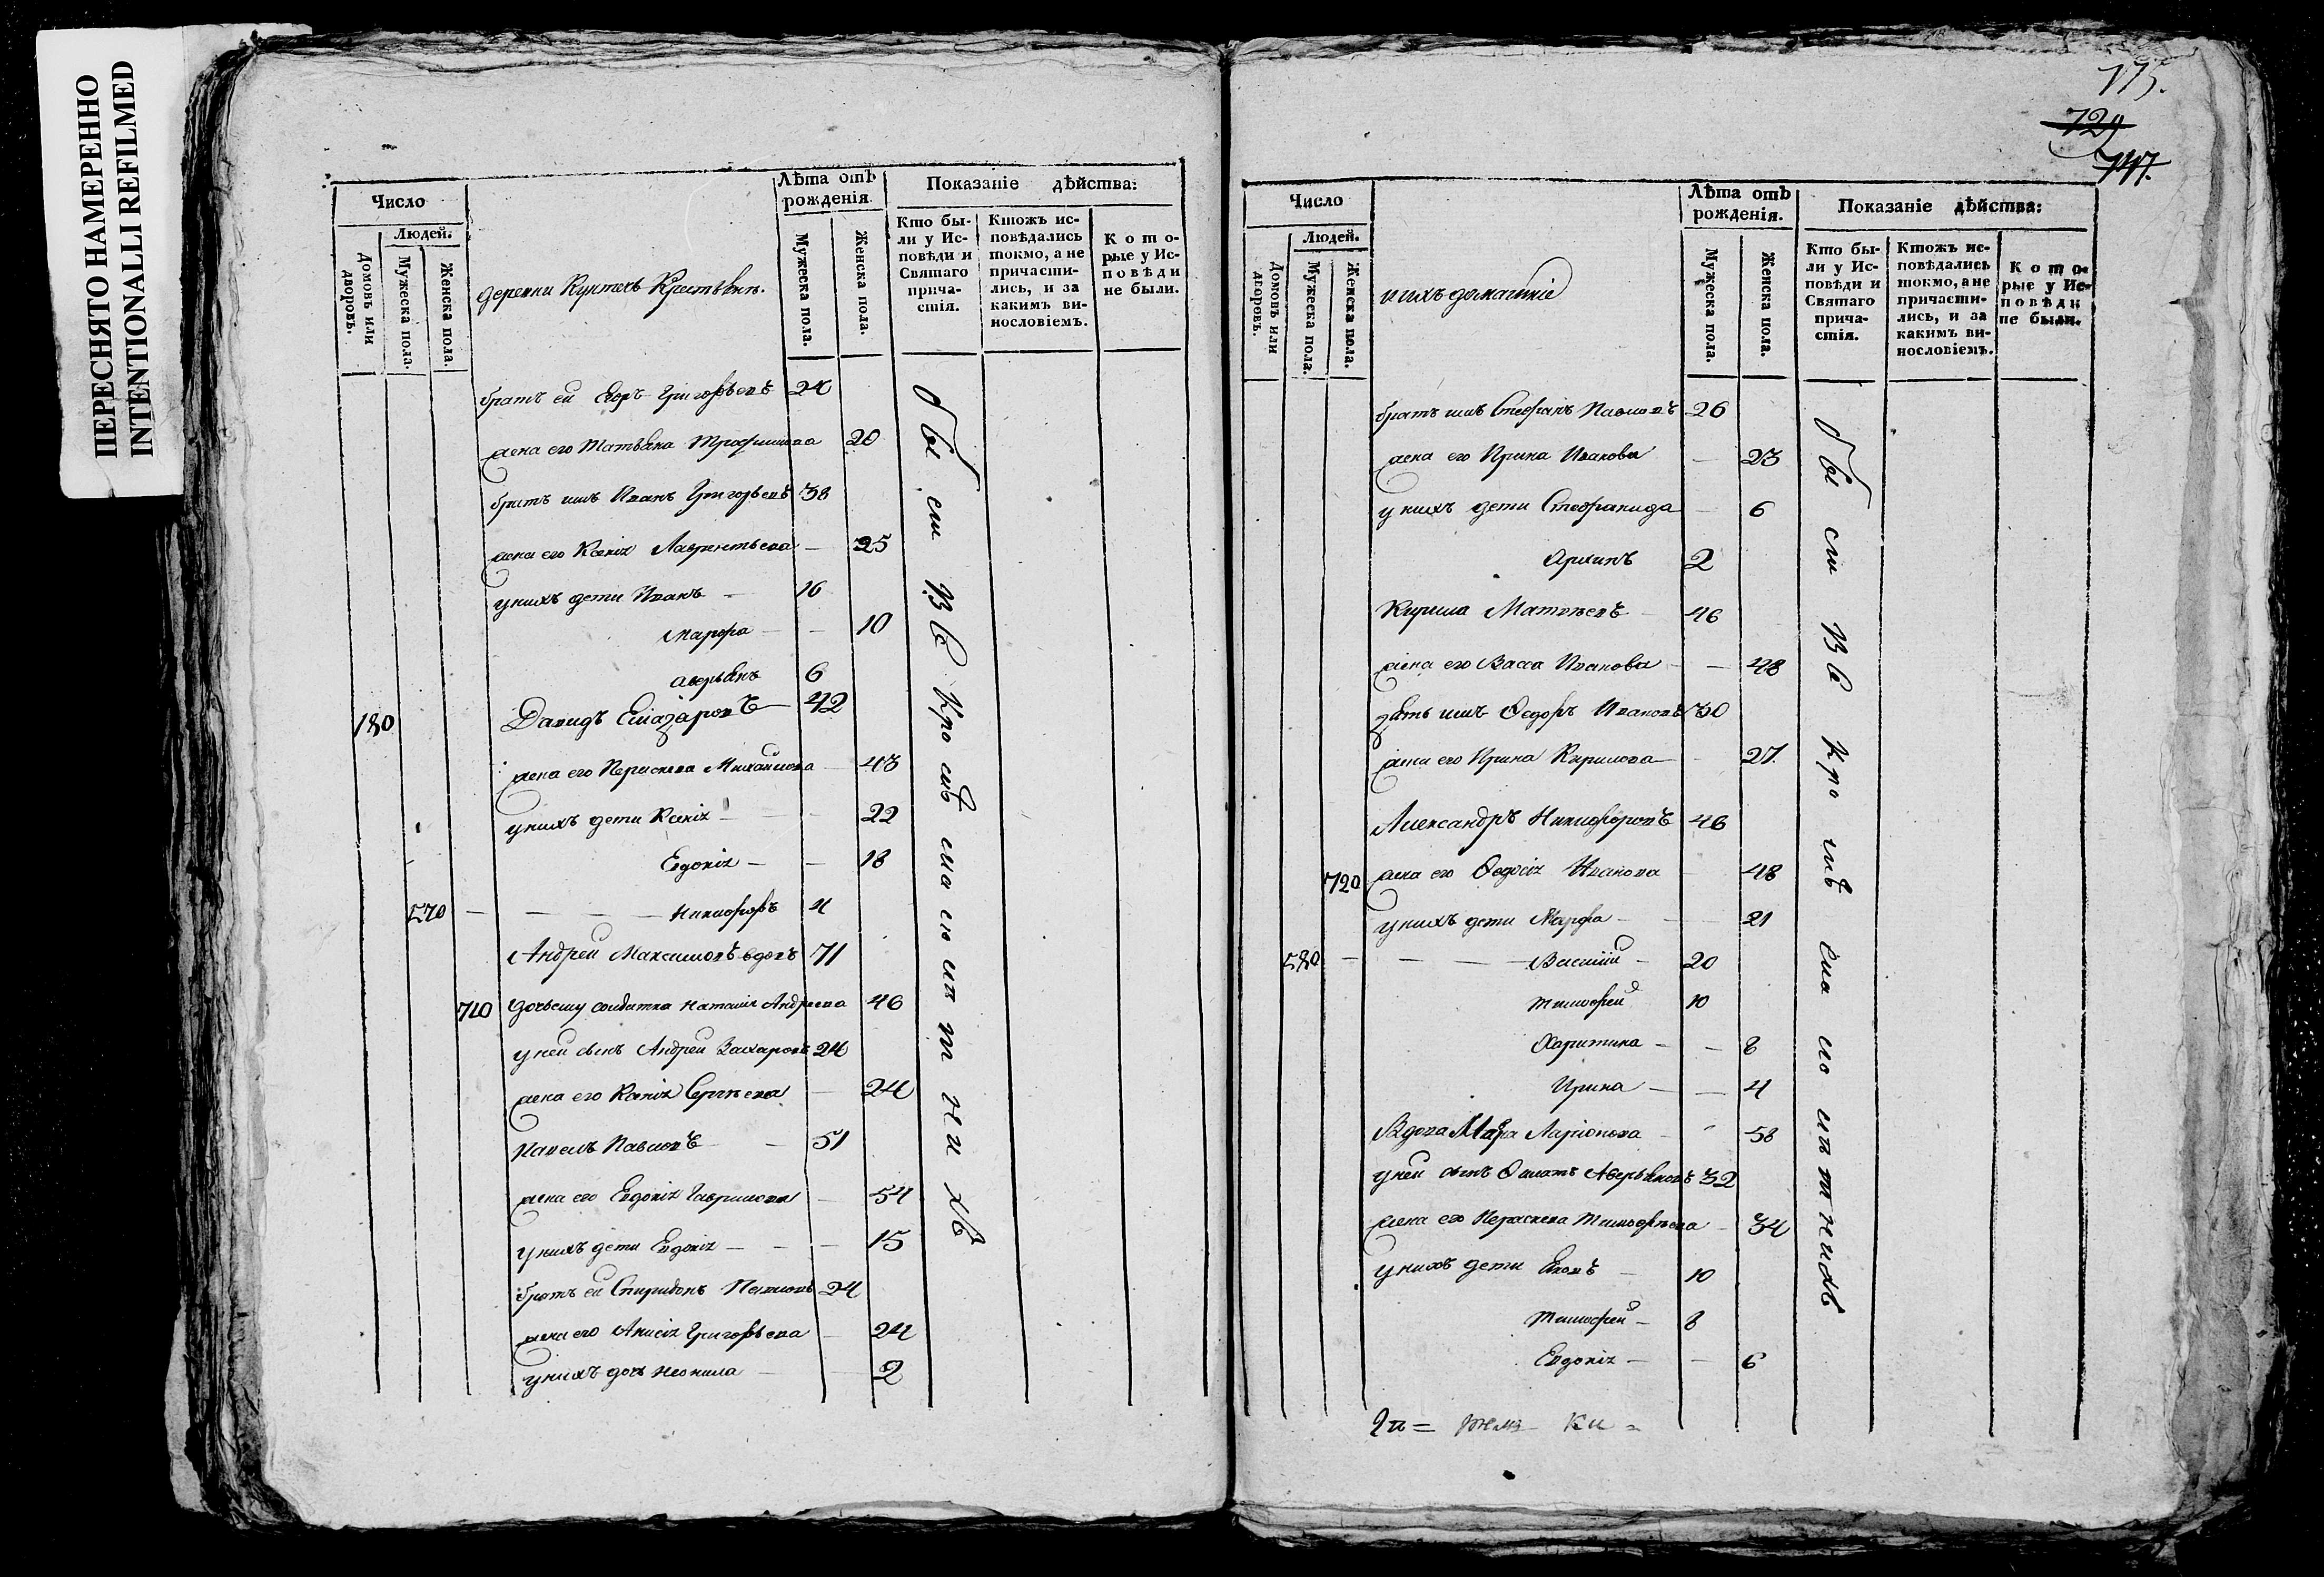 ПЕРЕСНЯТО НАМЕРЕННО
INTENTIONALLI REFILMED
Число
Людей.
Домовъ или дворовъ.
Мужеска пола.
Женска пола.
деревни Крестьянъ.
Лѣта отъ рожденія
Мужеска пола.
Женска пола.
Показаніе дѣйства:
Кто бы-
ли у Ис-
повѣди и
Святаго
прича-
стія.
Ктожъ ис-
повѣдались
токмо, а не
причасти-
лись, и за
какимъ ви-
нословіемъ.
Кото-
рые у Ис-
повѣди
не были.
братъ ей Егоръ Григорьевъ 24
жена его Татьяна Трофимова 20
братъ имъ Иванъ Григорьевъ 38
жена его Ксенія Лаврентьева — 35
у нихъ дети Иванъ — 16
Марфа — — 10
Аверьянъ 6
180 Давидъ Елазаровъ — 42
жена его Пераскева Михайлова — 43
у нихъ дети Ксенія — — 22
Евдокія — — 18
570 — — — — Никифоръ 4
Андрей Максимовъ вдовъ 71
710 дочь ему солдатка Наталия Андреева 46
у ней сынъ Андрей Захаровъ 24
жена его Ксенія Сергѣева — 24
Павелъ Павловъ — — 51
жена его Евдокія Гаврилова — 54
у нихъ дети Евдокія — — — 15
братъ ей Спиридонъ Павловъ 24
жена его Анисія Григорьева — 24
у нихъ дочь Неонила — — 2
Обы си Всѣ кромѣ малолѣтнихъ
175.
729
747.
Число
Людей.
Домовъ или дворовъ.
Мужеска пола.
Женска пола.
и ихъ домашніе
Лѣта отъ рожденія.
Мужеска пола.
Женска пола.
Показаніе дѣйства:
Кто бы-
ли у Ис-
повѣди и
Святаго
прича-
стія.
Ктожъ ис-
повѣдались
токмо, а не
причасти-
лись, и за
какимъ ви-
нословіемъ.
Кото-
рые у Ис-
повѣди
не были.
братъ имъ Стефанъ Павловъ 26
жена его Ирина Иванова — 23
у нихъ дети Стефанида — 6
Архипъ 2
Кирила Матвѣевъ — 46
жена его Васса Иванова — — 48
зять имъ Ѳедоръ Ивановъ 30
жена его Ирина Кирилова — — 27
Александръ Никифоровъ 46
720 жена его Ѳедосія Иванова 48
у нихъ дети Марфа — — — 21
580 — — — — Василій — 20
Тимофей 10
Харитина — — 8
Ирина — — 4
Вдова Ларіонова — 58
у ней сынъ Аверьяновъ 32
жена его Пераскева Тимофѣева — 34
у нихъ дети — 10
Тимофей — 8
Евдокія — — 6
Обы си Всѣ кромѣ малолѣтнихъ